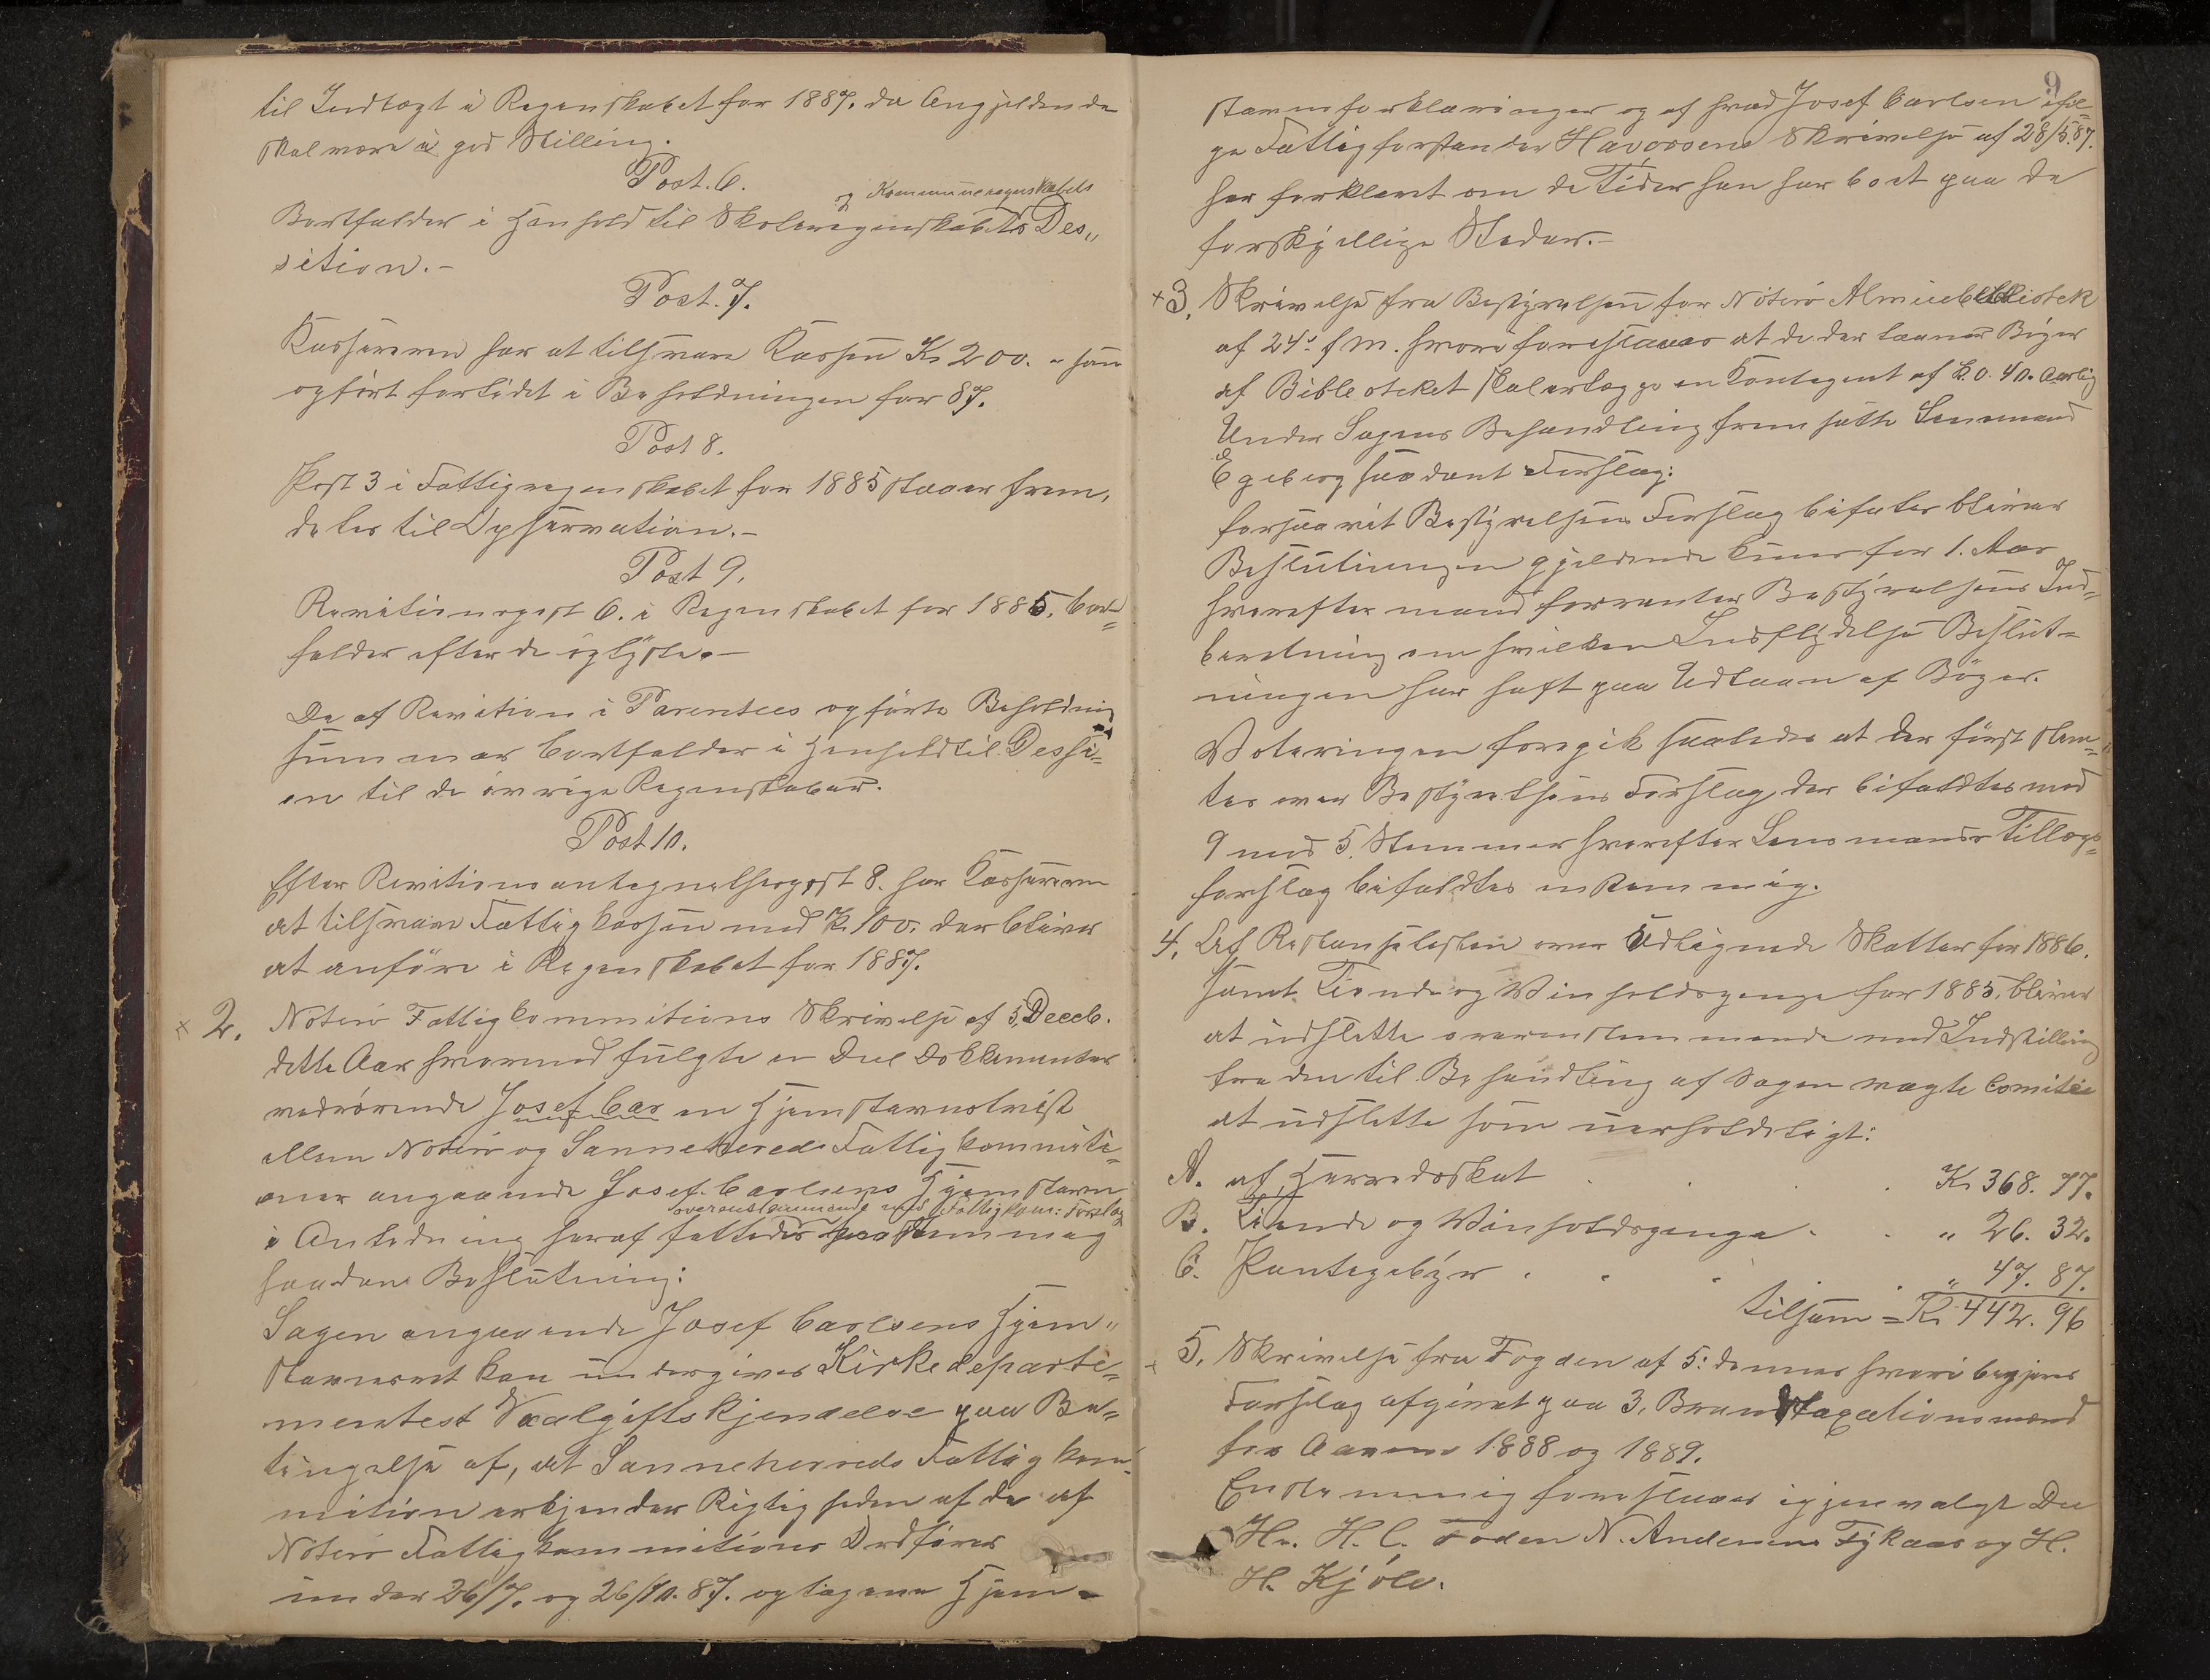 til Indtægt i Regenskabet for 1887. da Angjeldende
skal være i god Stilling.
Post. 6.
og Kommuneregnskabets
Bortfalder i Henhold til Skoleregenskabets Des„
sition.-
Post. 7.
Kassereren har at tilsvare Kassen Kr 200. - som
opført forlidet i Beholdningen for 87.
Post 8.
Post 3 i Fattigregenskabet for 1885 staar frem,
deles til Opservation.-
Post 9.
Revitionspost 6. i Regenskabet for 1885. bort=
falder efter de oplyste.-
De af Revition i Parentees opførte Beholdning
summer bortfalder i Henhold til Dessi=
on til de øvrige Regenskaber.
Post 10.
Efter Revitionsantegnelsespost 8. har Kassereren
at tilsvare Fattigkassen med Kr. 100. der bliver
at anføre i Regenskabet for 1887.
× 2. Nøterø Fattigkommitions Skrivelse af 5. Deceb.
dette Aar hvormed fulgte en Deel Dokkumenter
vedrørende Josef Car en Hjemstavnstvist
ellem Nøterø og Sanneherreds Fattigkommiti=
oner angaaende Josef Carlsens Hjemstavn
overenstemmende med Fattigkom: Forslag
i Anledning heraf fattedes enstemmig
saadan Beslutning:
Sagen angaaende Josef Carlsens Hjem„
stavnsret kan undergives Kirkedeparte=
mentest Vaalgiftskjendelse paa Be=
tingelse af, at Sanneherreds Fattigkom=
mition erkjender Rigtigheden af de af
Nøterø Fattigkommitions Ordfører
under 26/7. og 26/10. 87. optagene Hjem=
9
stavnsforklaringer og af hvad Josef Carlsen iføl=
ge Fattigforstander Havorsens Skrivelse af 28/5. 87.
har forklaret om de Tider han har boet paa de
forskjellige Steder.-
× 3. Skrivelse fra Bestyrelsen for Nøterø Almuebibliotek
af 24de f M. hvori foreslaaes at de der laaner Bøger
af Biblioteket skal erlægge en Kontegent af Kr. 0. 40. Aarlig
Under Sagens Behandling fremsatte Lensmand
Egeberg saadant Forslag:
forsaavit Bestyrelsens Forslag bifales bliver
Beslutningen gjeldende kuns for 1. Aar
hvorefter mand forventer Bestyrelsens Ind=
beretning om hvilken Indflydelse Beslut=
ningen har haft paa Udlaan af Bøger.
Voteringen foregik saaledes at der først stem=
tes over Bestyrelsens Forslag, der bifaldtes med
9 mod 5. Stemmer hvorefter Lensmands Tillægs=
forslag bifaldtes enstemmig.
4. Af Restanselisten over Udligende Skatter for 1886.
samt Tiende og Vinholdspenge for 1885. bliver
at udslette overenstemmende med Indstilling
fra den til Behandling af Sagen valgte Comitee
at udslette som uerholdeligt:
A. af Herredsskat . . . Kr 368. 77.
B. Tiende og Vinholdspenge . . „ 26. 32.
C. Pantegebyr . . . . „ 47. 87.
tilsam = Kr. 442. 96
× 5. Skrivelse fra Fogden af 5: dennes hvori begjæres
Forslag afgivet paa 3, Brandtaxationsmænd
for Aarene 1888 og 1889.
Enstemmig foreslaaes igjenvalgt De
Hr. H. C. Foden N. Andersens Fykaas og H.
H. Kjøle.